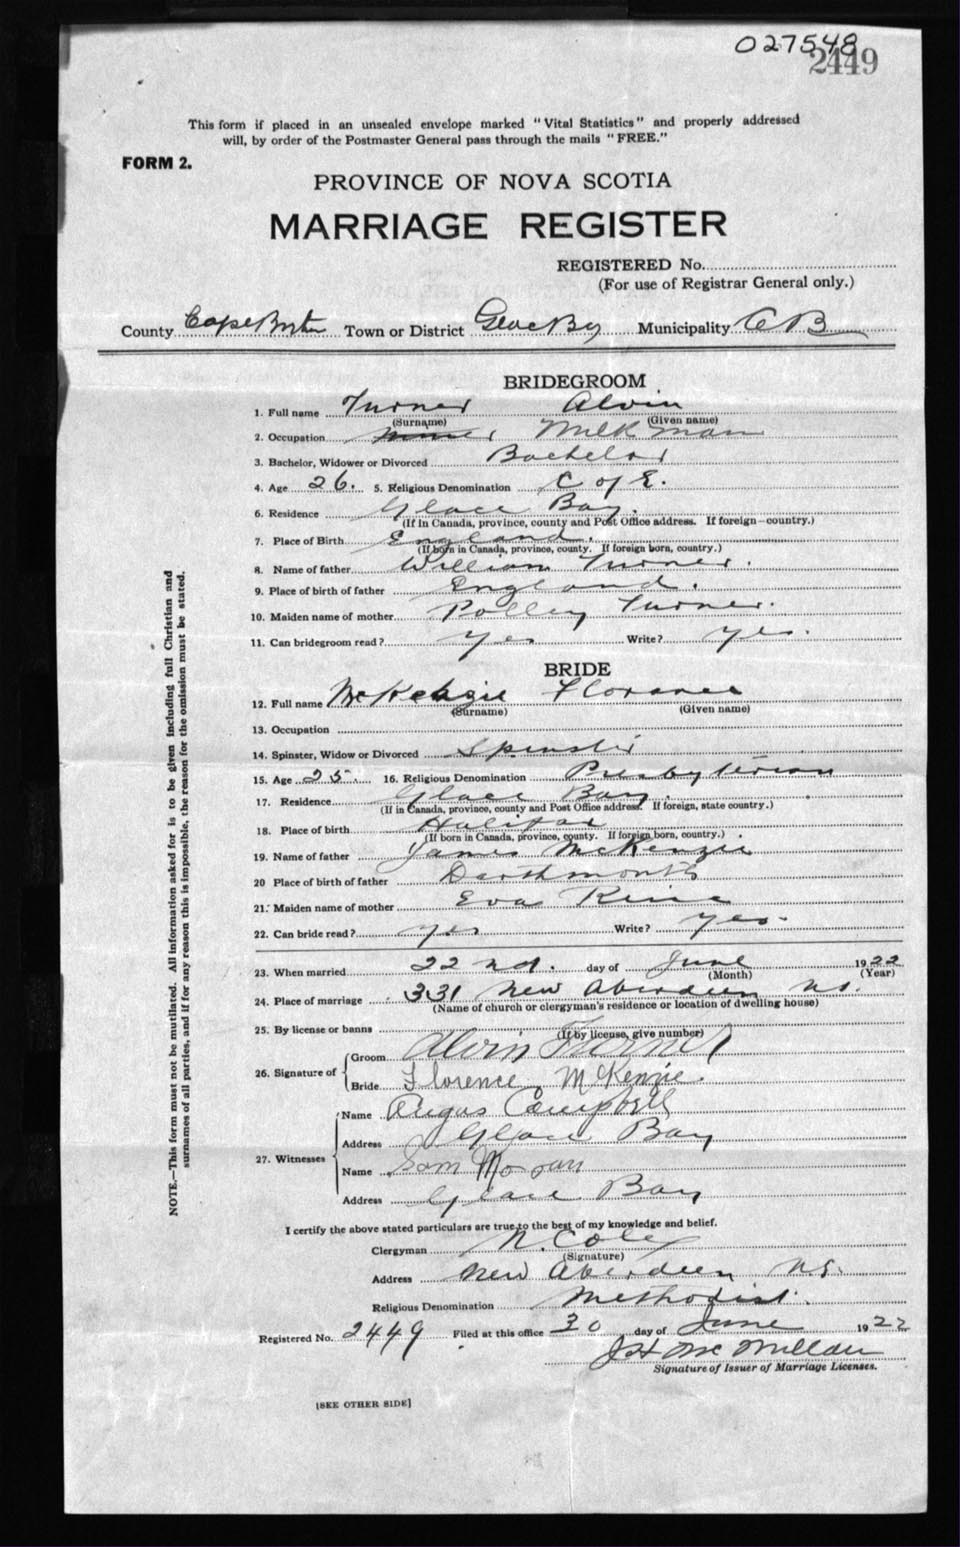 027548
2449
This form if placed in an unsealed envelope marked "Vital Statistics" and properly addressed
will, by order of the Postmaster General pass through the mails "FREE."
FORM 2.
PROVINCE OF NOVA SCOTIA
MARRIAGE REGISTER
REGISTERED No.
(For use of Registrar General only.)
County Cape Breton Town or District Glace Bay Municipality C B
BRIDEGROOM
1. Full name Turner Alvin
(Surname) (Given name)
2. Occupation Milk man
3. Bachelor, Widower or Divorced Bachelor
4. Age 26. 5. Religious Denomination C of E.
6. Residence Glace Bay.
(If in Canada, province, county and Post Office address. If foreign—country.)
7. Place of Birth England.
(If born in Canada, province, county. If foreign born, country.)
8. Name of father William Turner.
9. Place of birth of father England.
10. Maiden name of mother Polley Turner.
11. Can bridegroom read? Yes Write? Yes.
BRIDE
12. Full name McKenzie Florance
(Surname) (Given name)
13. Occupation
14. Spinster, Widow or Divorced Spinster
15. Age 25. 16. Religious Denomination Presbyterian
17. Residence Glace Bay.
(If in Canada, province, county and Post Office address. If foreign, state country.)
18. Place of birth Halifax
(If born in Canada, province, county. If foreign born, country.)
19. Name of father James McKenzie
20 Place of birth of father Darthmouth
21. Maiden name of mother Eva
22. Can bride read? yes Write? yes.
23. When married 22 nd. day of June 1922
(Month) (Year)
24. Place of marriage 331 New Aberdeen N.S.
(Name of church or clergyman's residence or location of dwelling house)
25. By license or banns
(If by license, give number)
26. Signature of Groom Alvin Turner
Bride Florence McKenzie.
27. Witnesses Name Angus Campbell
Address Glace Bay
Name Sam
Address Glace Bay
I certify the above stated particulars are true to the best of my knowledge and belief.
Clergyman N. Cole
(Signature)
Address New Aberdeen N.S.
Religious Denomination Methodist.
Registered No. 2449 Filed at this office 30 day of June 1922
J H McMillan
Signature of Issuer of Marriage Licenses.
[SEE OTHER SIDE]
NOTE.—This form must not be mutilated. All information asked for is to be given including full Christian and
surnames of all parties, and if for any reason this is impossible, the reason for the omission must be stated.